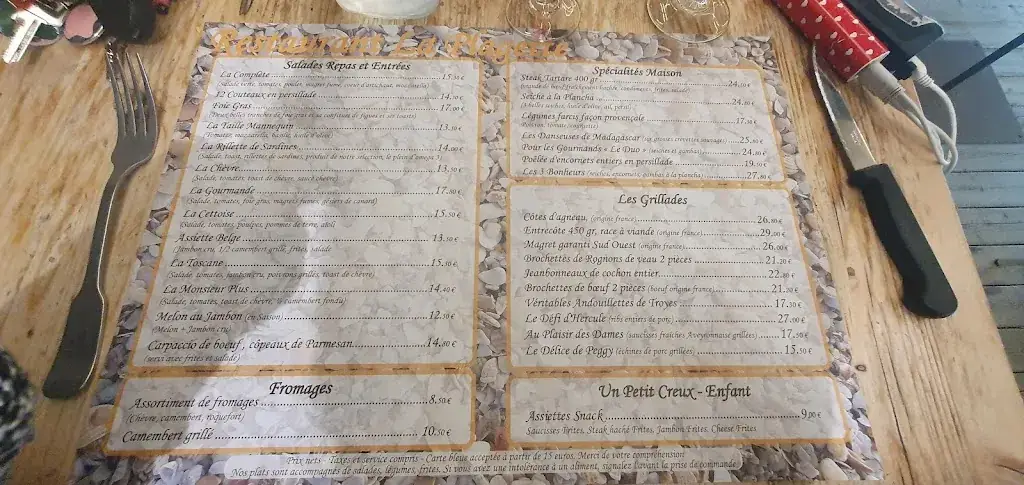 Restaurant La Playette
Salades Repas et Entrées
La Complète 15.50 €
12 Couteaux en persillade 14.50 €
Foie Gras 17.00 €
(Deux belles tranches de foie gras et sa confiture de figues et ses toasts)
La Taille Mannequin 13.50 €
(Tomates, mozzarella, basilic, huile d'olive)
La Rillette de Sardines 14.00 €
(Salade, toast, rillettes de sardines, produit de notre sélection, le plein d'omega 3)
La Chèvre 13.50 €
(Salade, tomates, toast de chèvre, sauce chèvre)
La Gourmande 17.80 €
(Salade, tomates, foie gras, magrets fumés, gésiers de canard)
La Cettoise 15.50 €
(Salade, tomates, poulpes, pommes de terre, aïoli)
Assiette Belge 13.50 €
(Jambon cru, 1/2 camembert grillé, frites, salade
La Toscane 15.50 €
(Salade, tomates, jambon cru, poivrons grillés, toast de chèvre)
La Monsieur Plus 14.40 €
(Salade, tomates, toast de chèvre, ½ camembert fondu)
Melon du Jambon (en Saison) 12.50 €
(Melon + Jambon cru)
Carpaccio de boeuf, côpeaux de Parmesan 14.80 €
(servi avec frites et salade)
Fromages
Assortiment de fromages 8.50 €
(Chèvre, camembert, roquefort)
Camembert grillé 10.50 €
Spécialités Maison
Steak Tartare 400 gr 24.50 €
Seiche à la Plancha 24.80 €
Légumes farcis façon provençale 17.50 €
Les Danseuses de Madagascar (six grosses crevettes sauvages) 25.80 €
Pour les Gourmands « Le Duo » (seiches et gambas) 24.80 €
Poêlée d'encornets entiers en persillade 19.50 €
Les 3 Bonheurs (seiches, encornets, gambas à la plancha) 27.80 €
Les Grillades
Côtes d'agneau, (origine france) 26.80 €
Entrecôte 450 gr, race à viande (origine france) 29.00 €
Magret garanti Sud Ouest (origine france) 26.00 €
Brochettes de Rognons de veau 2 pièces 21.20 €
Jeanbonneaux de cochon entier 22.80 €
Brochettes de bœuf 2 pièces (bœuf origine france) 21.50 €
Véritables Andouillettes de Troyes 17.50 €
Le Défi d'Hercule (ribs entiers de porc) 27.00 €
Au Plaisir des Dames (saucisses fraîches Aveyronnaise grillées) 17.50 €
Le Délice de Peggy (échines de porc grillées) 15.50 €
Un Petit Creux - Enfant
Assiettes Snack 9.00 €
Saucisses Frites, Steak haché Frites, Jambon Frites, Cheese Frites
Prix nets - Taxes et service compris - Carte bleue acceptée à partir de 15 euros, Merci de votre compréhension
Nos plats sont accompagnés de salades, légumes, frites. Si vous avez une intolérance à un aliment, signalez l'avant la prise de commande